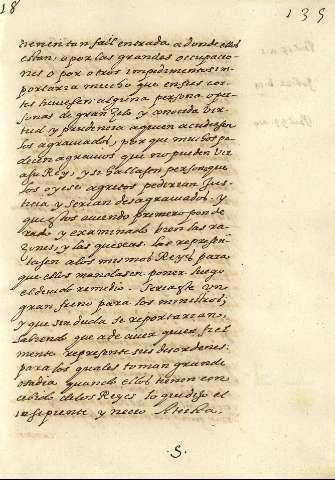 18
135
tienen tan facil entrada a donde ellos
estan, o por las grandes ocupacio-
nes o por otros impedimentos im-
portaria mucho que en sus cor-
tes huuiesen alguna persona o per-
sonas de gran zelo y conocida vir-
tud y prudencia a quien acudiesen
los agrauiados, por que muchos pa-
decen agrauios que no pueden dezir
a su Rey, y si hallasen persona que
los oyese a estos pedirian Jus-
ticia y serian desagrauiados, y
que estos auiendo primero ponde-
rado y examinado bien las ra-
zones, y las quexas las represen-
tasen a los mismos Reyes para
que ellos mandasen poner luego
el deuido remedio. Seria este un
gran freno para los ministros,
y que sin duda se reportarian,
sabiendo que a de auer quien fiel
mente represente sus desordenes:
para los quales toman grande
osadia quando ellos tienen con
cebido de los Reyes lo que dijo el
insipiente y necio Ateista.
.S.